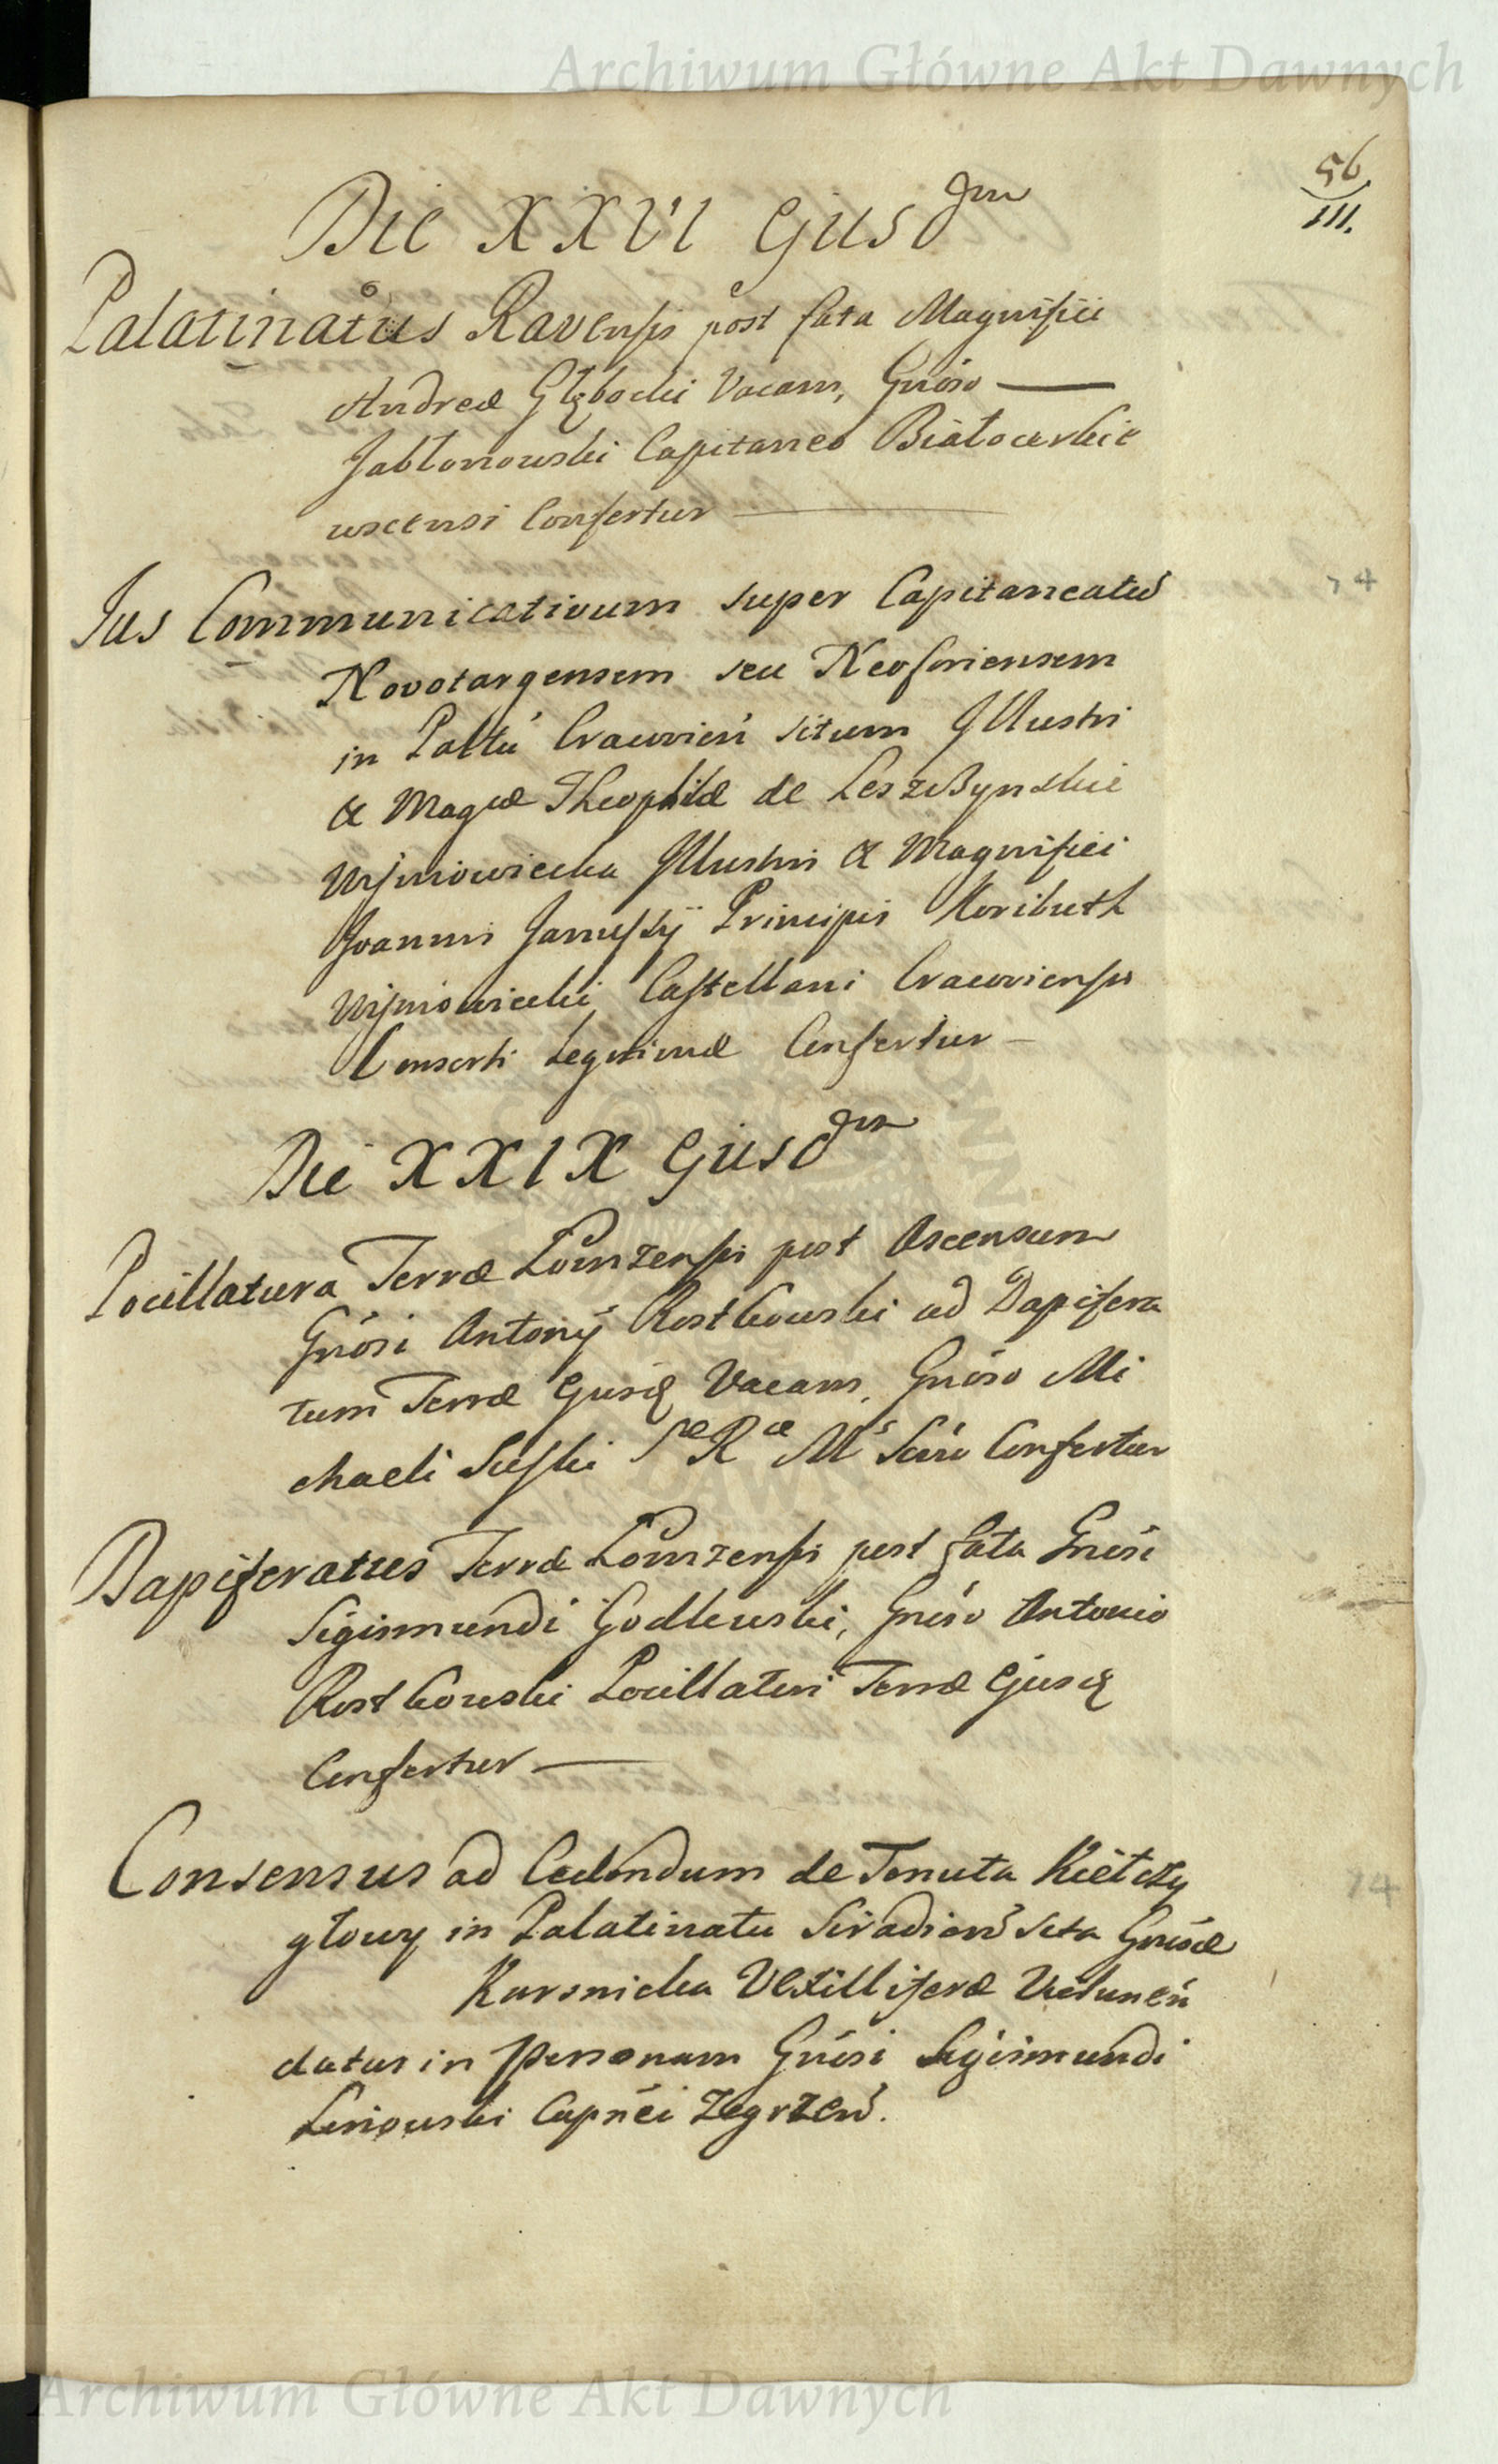 Archiwum Główne Akt Dawnych
56
111.
Die XXVI Ejusdm
Palatinatus Ravensis post fata Magnifici
Andreæ Głębocki Vacans, Gnóso —
Jabłonowski Capitaneo Białocerkie
wscensi Confertur —
Jus Communicativum super Capitaneatũ
74
Novotargensem seu Neoforiensem
in Paltú Cracovień situm Illustri
& Magcæ Theophilæ de Leszczynskie
Wisniowiecka Illustri & Magnifici
Joannis Janussij Principis Koributh
Wisniowiecki Castellani Cracoviensis
Consorti Legitimæ Confertur —
Die XXIX Ejusdm
Pocillatura Terræ Łomzensis post Ascensum
Gnósi Antonij Rostkowski ad Dapifera
tum Terræ Ejusd Vacans, Gnóso Mi
chaeli Suski Sæ Ræ Mˢ Scrio Confertur
Dapiferatus Terræ Łomzensis post fata Gnósi
Sigismundi Godlewski, Gnóso Antonio
Rostkowski Pocillatori Terræ Ejusd
Confertur —
Consensus ad Cedendum de Tenuta Kiełczy
74
głowy in Palatinatu Siradień sita Gnósæ
Karsnicka Vexilliferæ Vielunen̄
datur in Personam Gnósi Sigismundi
Leniowski Capnéi Zegrzeń.
Archiwum Główne Akt Dawnych